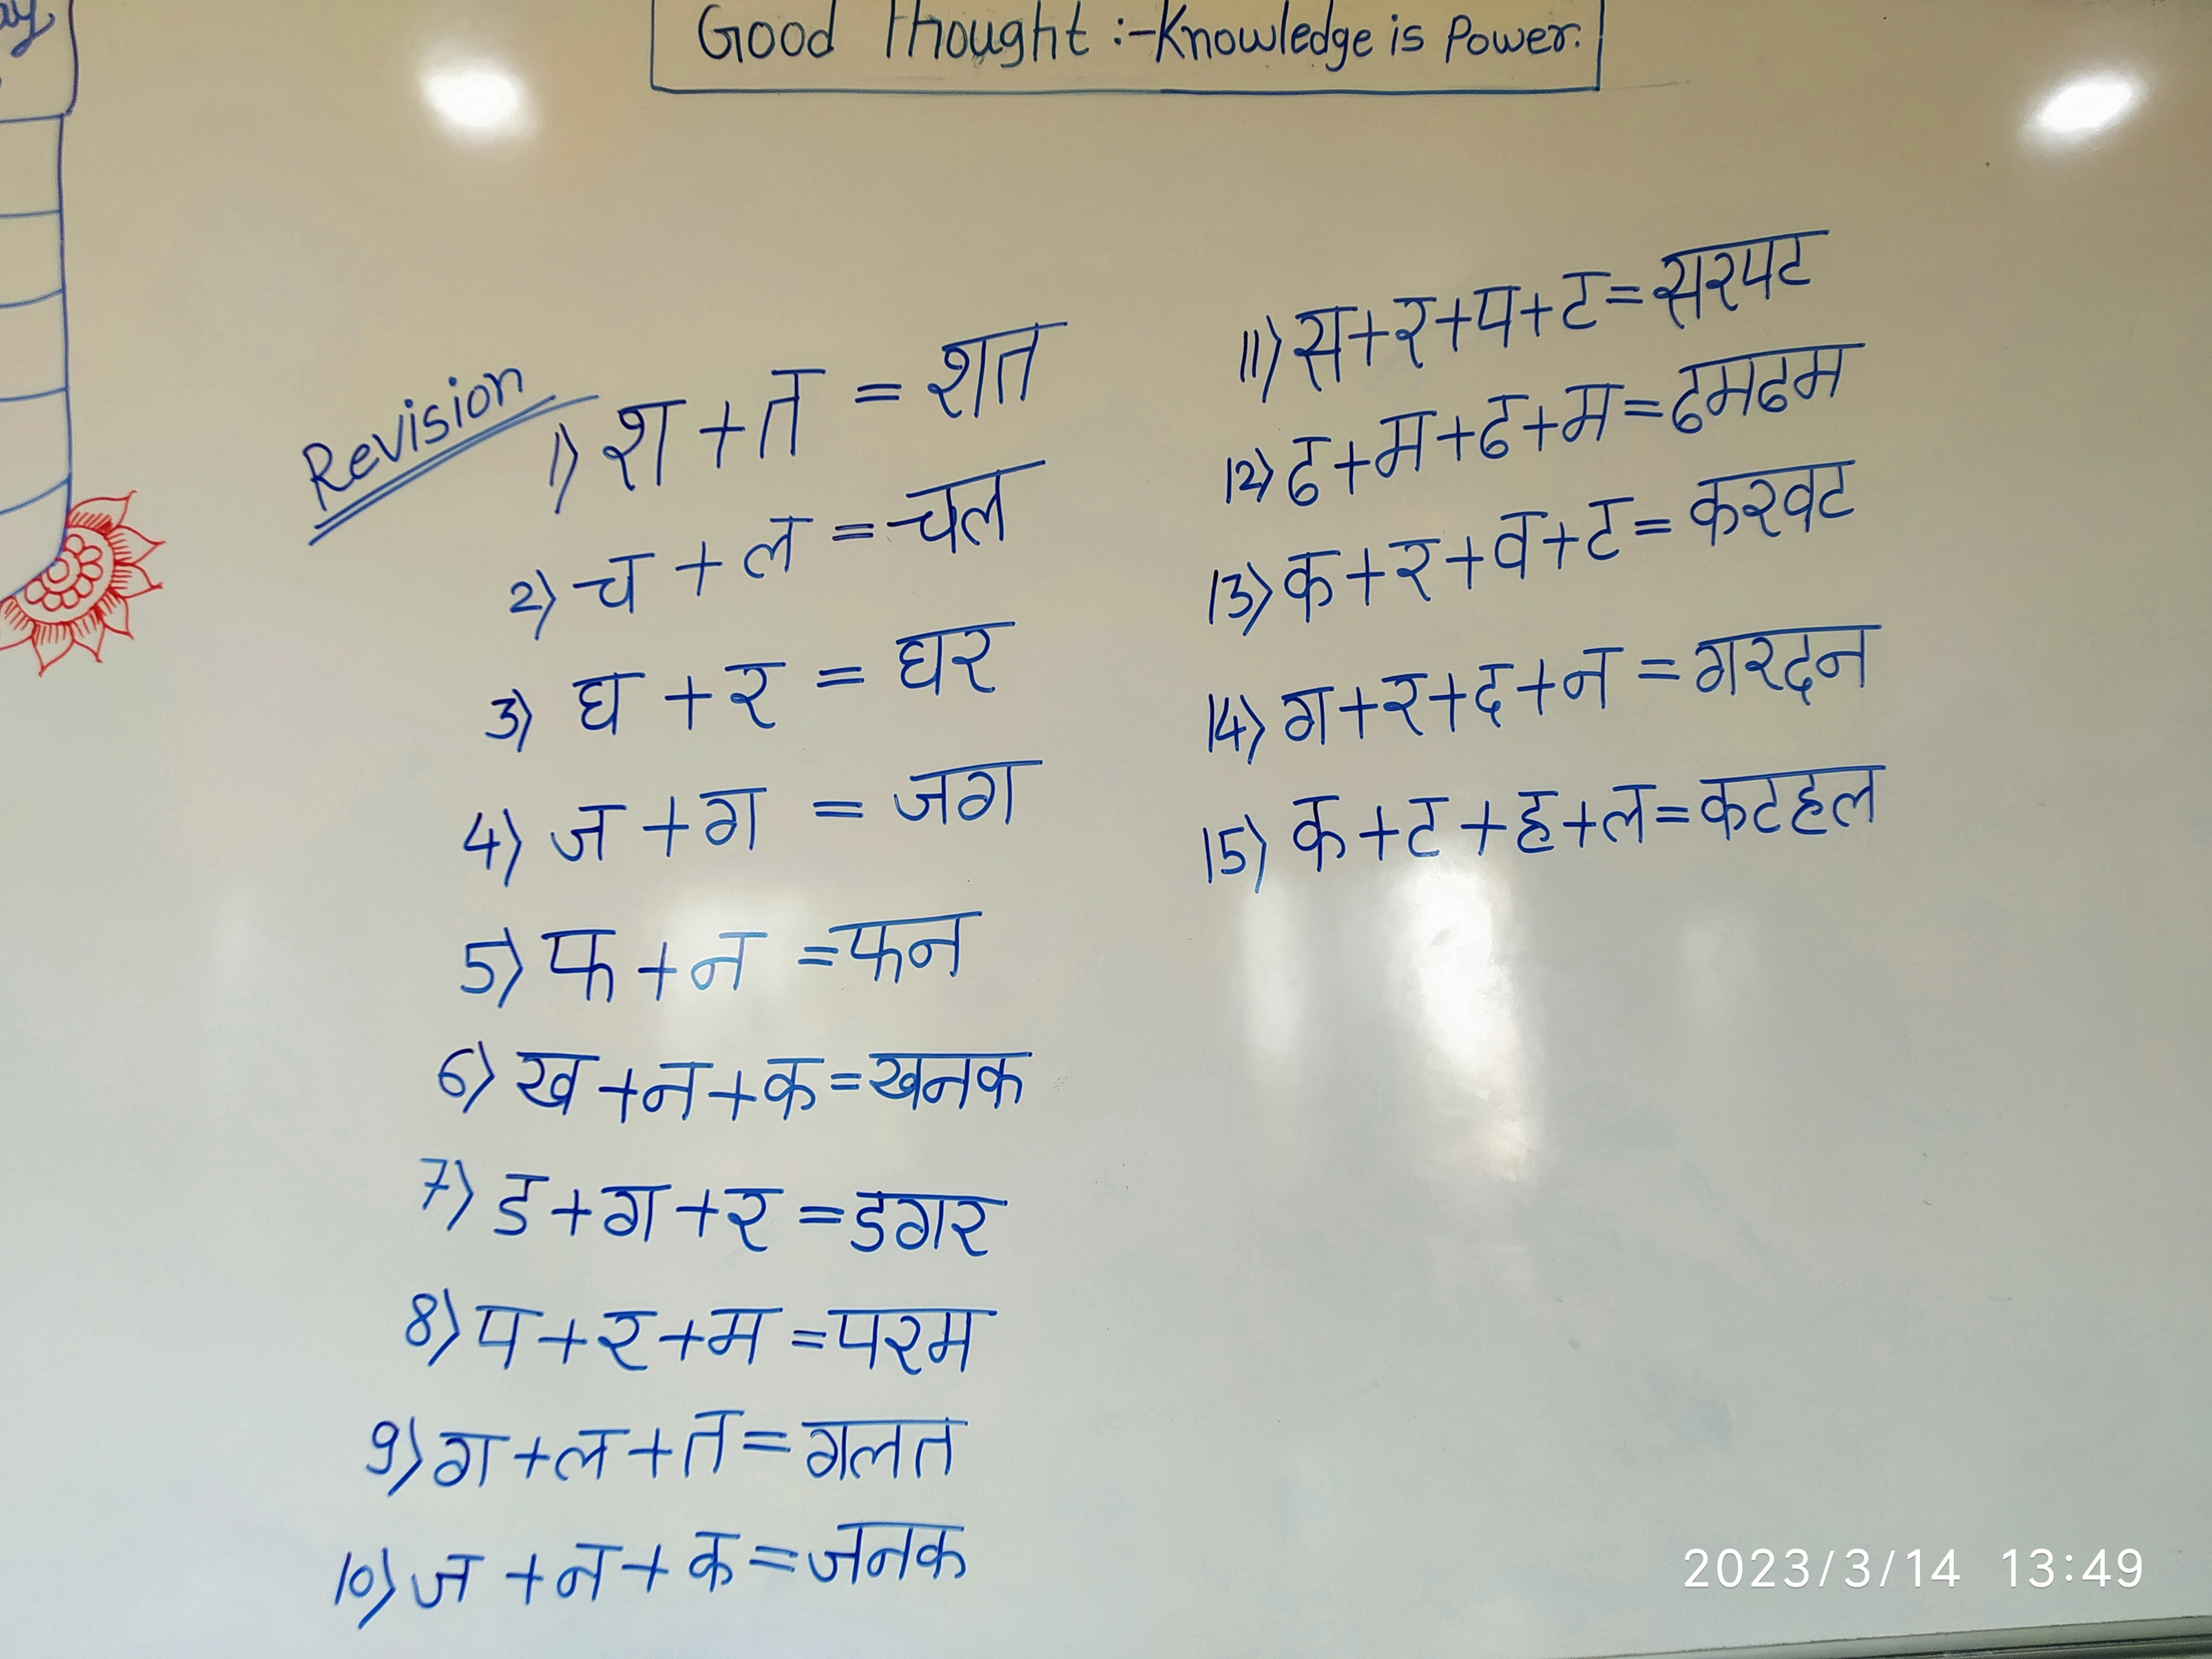 Good Thought :- Knowledge is Power.
Revision
1) श + त = शत
2) च + ल = चल
3) घ + र = घर
4) ज + ग = जग
5) फ + न = फन
6) ख + न + क = खनक
7) ड + ग + र = डगर
8) प + र + म = परम
9) ग + ल + त = गलत
10) ज + न + क = जनक
11) स + र + प + ट = सरपट
12) ढ + म + ढ + म = ढमढम
13) क + र + व + ट = करवट
14) ग + र + द + न = गरदन
15) क + ट + ह + ल = कटहल
2023/3/14 13:49